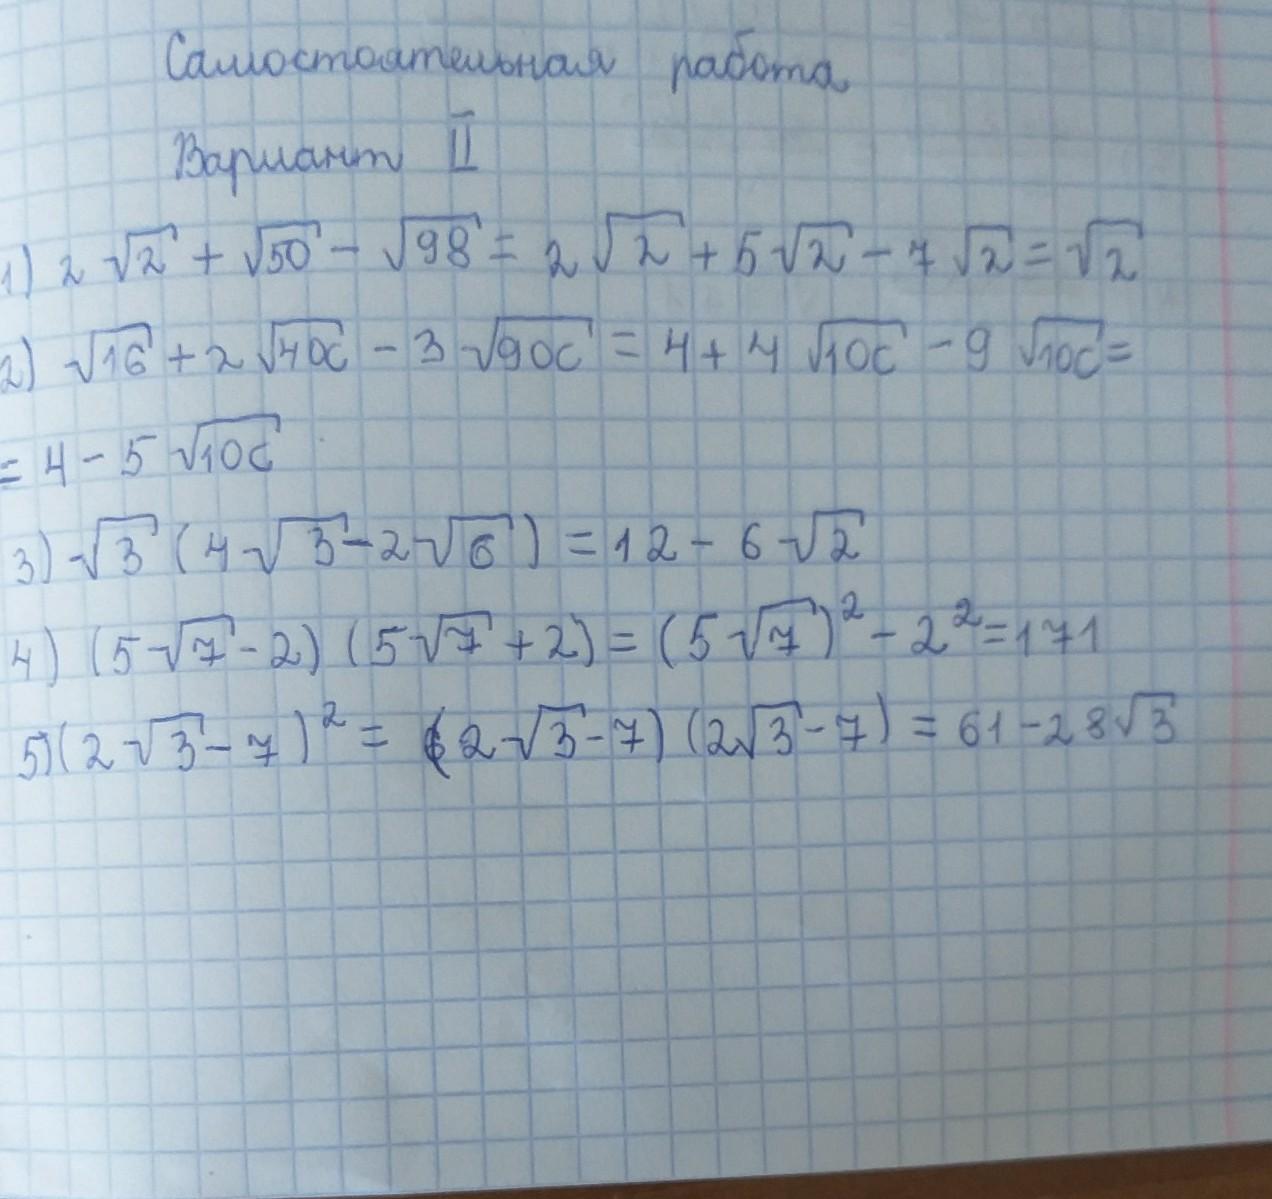 Самостоятельная работа
Вариант II
1) 2√2 + √50 - √98 = 2√2 + 5√2 - 7√2 = √2
2) √16 + 2√40c - 3√90c = 4 + 4√10c - 9√10c =
= 4 - 5√10c
3) √3 (4√3 - 2√6) = 12 - 6√2
4) (5√7 - 2) (5√7 + 2) = (5√7)² - 2² = 171
5) (2√3 - 7)² = (2√3 - 7) (2√3 - 7) = 61 - 28√3